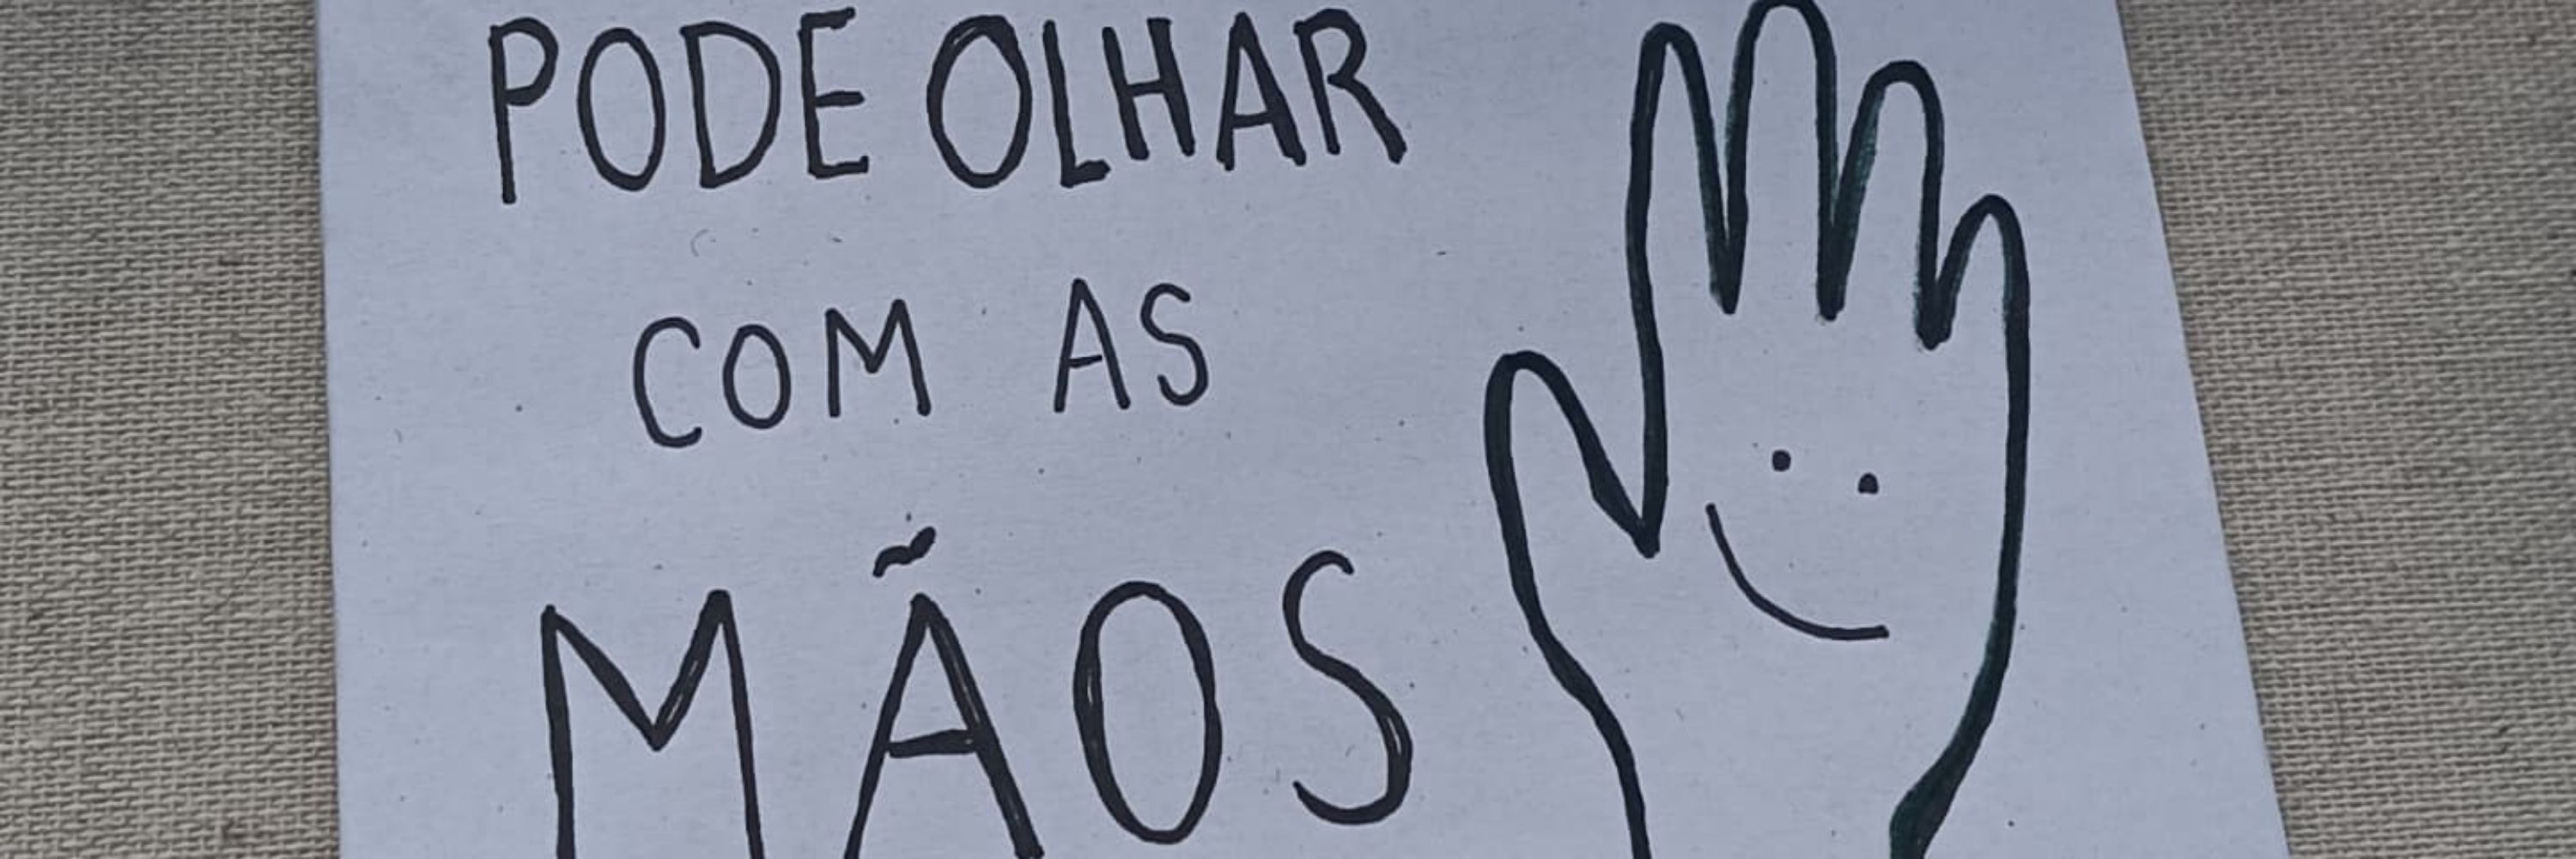 PODE OLHAR
COM AS
MÃOS